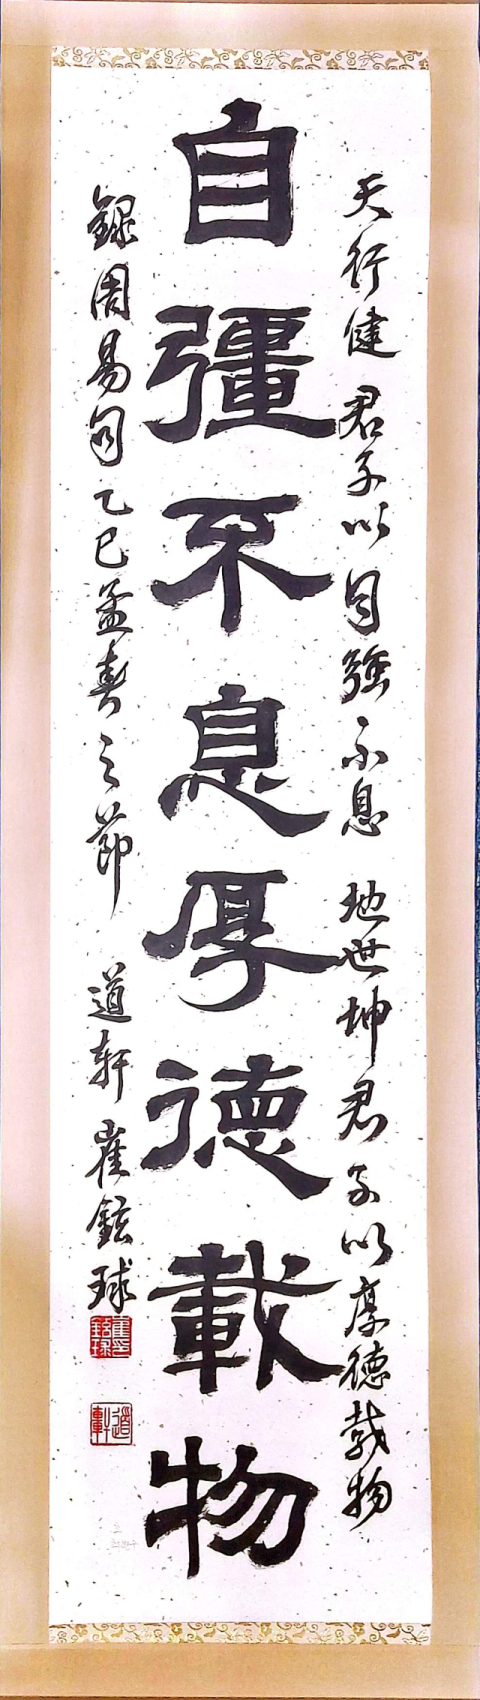 天行健 君子以自強不息 地世坤君子以厚德載物
自彊不息厚德載物
録周易句乙巳孟春之節 道軒 崔鉉球
崔鉉球印
道軒